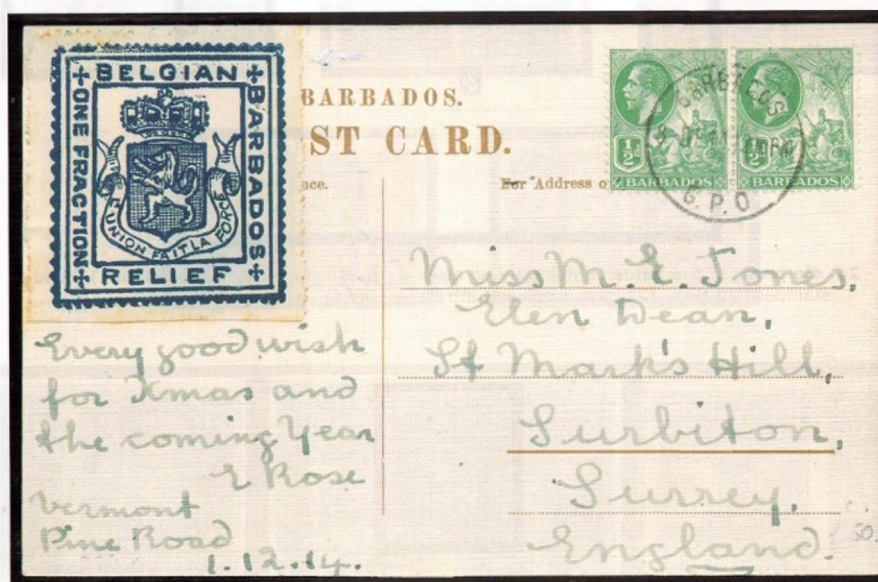 BELGIAN
ONE FRACTION
BARBADOS
L'UNION FAIT LA FORCE
RELIEF
BARBADOS.
ST CARD.
ce.
For Address o
½d
BARBADOS
½d
BARBADOS
BARBADOS
G.P.O
Every good wish
for Xmas and
the coming Year
E Rose
Vermont
Pine Road
1.12.14.
Miss M. E. Jones,
Elen Dean,
St Mark's Hill,
Surbiton,
Surrey,
England.